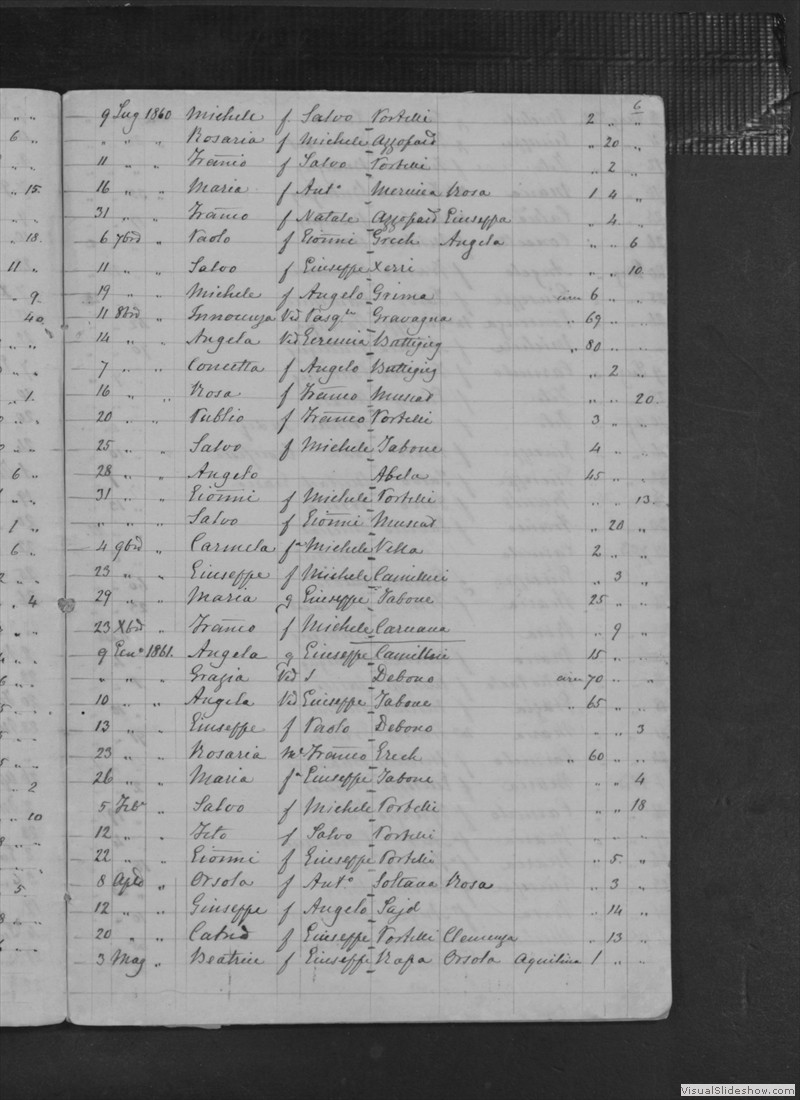 6
9 Lug 1860 Michele f Salvo Portelli 2 " "
" " " Rosaria f Michele Azzopard " 20 "
11 " " Franco f Salvo Portelli " 2 "
16 " " Maria f Ant° Mercieca Rosa 1 4 "
31 " " Franco f Natale Azzopard Giuseppa " 4 "
6 7bre " Paolo f Gionni Grech Angela " " 6
11 " " Salvo f Giuseppe Xerri " " 10
19 " " Michele f Angelo Grima circa 6 " "
11 8bre " Innocenza Vid Pasq.le Gravagna " 69 " "
14 " " Angela Vid Geremia Buttigieg " 80 " "
7 " " Concetta f Angelo Buttigieg " 2 "
16 " " Rosa f Franco Muscat " " 20
20 " " Publio f Franco Portelli 3 " "
25 " " Salvo f Michele Tabone 4 " "
28 " " Angelo Abela 45 " "
31 " " Gionni f Michele Portelli " " 13
" " " Salvo f Gionni Muscat " 20 "
4 9bre " Carmela fa Michele Vella 2 " "
23 " " Giuseppe f Michele Camilleri " 3 "
29 " " Maria g Giuseppe Tabone 25 " "
23 Xbre " Franco f Michele Caruana " 9 "
9 Gen° 1861. Angela g Giuseppe Camilleri 15 " "
" " " Grazia Vid Debono circa 70 " "
10 " " Angela Vid Giuseppe Tabone " 65 " "
13 " " Giuseppe f Paolo Debono " " 3
23 " " Rosaria Franco Grech " 60 " "
26 " " Maria fa Giuseppe Tabone " " 4
5 Feb° " Salvo f Michele Portelli " " 18
12 " " Zeto f Salvo Portelli " " "
22 " " Gionni f Giuseppe Portelli " 5 "
8 Aple " Orsola f Ant° Soltana Rosa " 3 "
12 " " Giuseppe f Angelo Sajd " 14 "
20 " " f Giuseppe Portelli Clemenza " 13 "
3 Mag " Beatrice f Giuseppe Rapa Orsola Aquilina 1 " "
VisualSlideshow.com